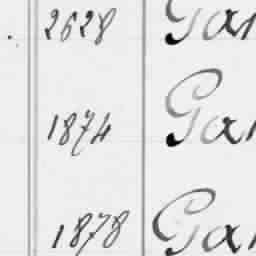 2628 Gar
1874 Gar
1878 Gar